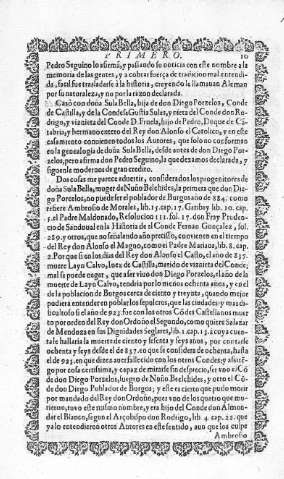 PRIMERO. 10
Pedro Seguino lo afirmã, y passando su noticia con este nombre a la
memoria de las gentes, y a cobrar fuerça de tradicion mal entendi-
da, facil fue trasladarse à la historia, creyendo le llamauan Aleman
por su naturaleza, y no por la razon declarada.
Casò con doña Sula Bella, hija de don Diego Porzelos, Conde
de Castilla, y de la Condesa Gustia Sulas, y nieta del Conde don Ro-
drigo, y vizni​eta del Conde D. Fruela, hijo de Pedro, Duque de Cã-
tabria, y hermano entero del Rey don Alonso el Catolico, y en este
casamiento conuienen todos los Autores, que solo no conforman
en la genealogia de doña Sula Bella, desde antes de don Diego Por-
zelos, pero afirma don Pedro Seguino, la que dexamos declarada, y
siguenle modernos de gran credito.
Dos cosas me parece aduertir, considerados los progenitores de
doña Sula Bella, muger de Nuño Belchides, la primera que don Die-
go Porzelos, no puede ser el poblador de Burgos año de 884. como
refiere Ambrosio de Morales, lib. 15. cap. 17. Garibay lib. 10. cap.
5. el Padre Maldonado, Resolucion 111. fol. 17. don Fray Pruden-
cio de Sandoual en la Historia de el Conde Fernan Gonçalez, fol.
289. y otros, que no señalando año preciso, conuienen en el tiempo
del Rey don Alonso el Magno, como el Padre Mariana, lib. 8. cap.
2. Porque si en los dias del Rey Don Alonso el Casto, el año de 837.
muere Layn Calvo, Iuez de Castilla, marido de viznieta de Conde,
mal se puede negar, que a ser vivo don Diego Porzelos, el año de la
muerte de Layn Calvo, tendria por lo menos ochenta años, y en el
de la poblacion de Burgos cerca de ciento y treynta, quando mejor
pudiera entender en poblarles sepulcros, que las ciudades: y mas di-
ficultoso si el año de 923. fue con los otros Cõdes Castellanos muer-
to por orden del Rey don Ordoño el Segundo, como quiere Salazar
de Mendoza en sus Dignidades Seglares, lib. 1. cap. 13. cuya cuen-
ta le hallaria la muerte de ciento y setenta y seys años, por contarse
ochenta y seys desde el de 837. en que se considera de ochenta, hasta
el de 923. en que diera aver sucedido con los otros Condes: y assi tẽ-
go por cosa certissima, y capaz de mirarse sin desprecio, ser vno el Cõ-
de don Diego Porzelos, suegro de Nuño Belchides, y otro el Cõ-
de don Diego Poblador de Burgos; y este es cierto que pudo morir
por mandado del Rey don Ordoño, pues vno de los quatro que mu-
rieron, tuvo este mismo nombre, y era hijo del Conde don Almon-
der el Blanco, segun el Arçobispo don Rodrigo, lib. 4. cap. 22. que
ya lo entendieron otros Autores en este sentido, aun que los culpa
Ambrosio